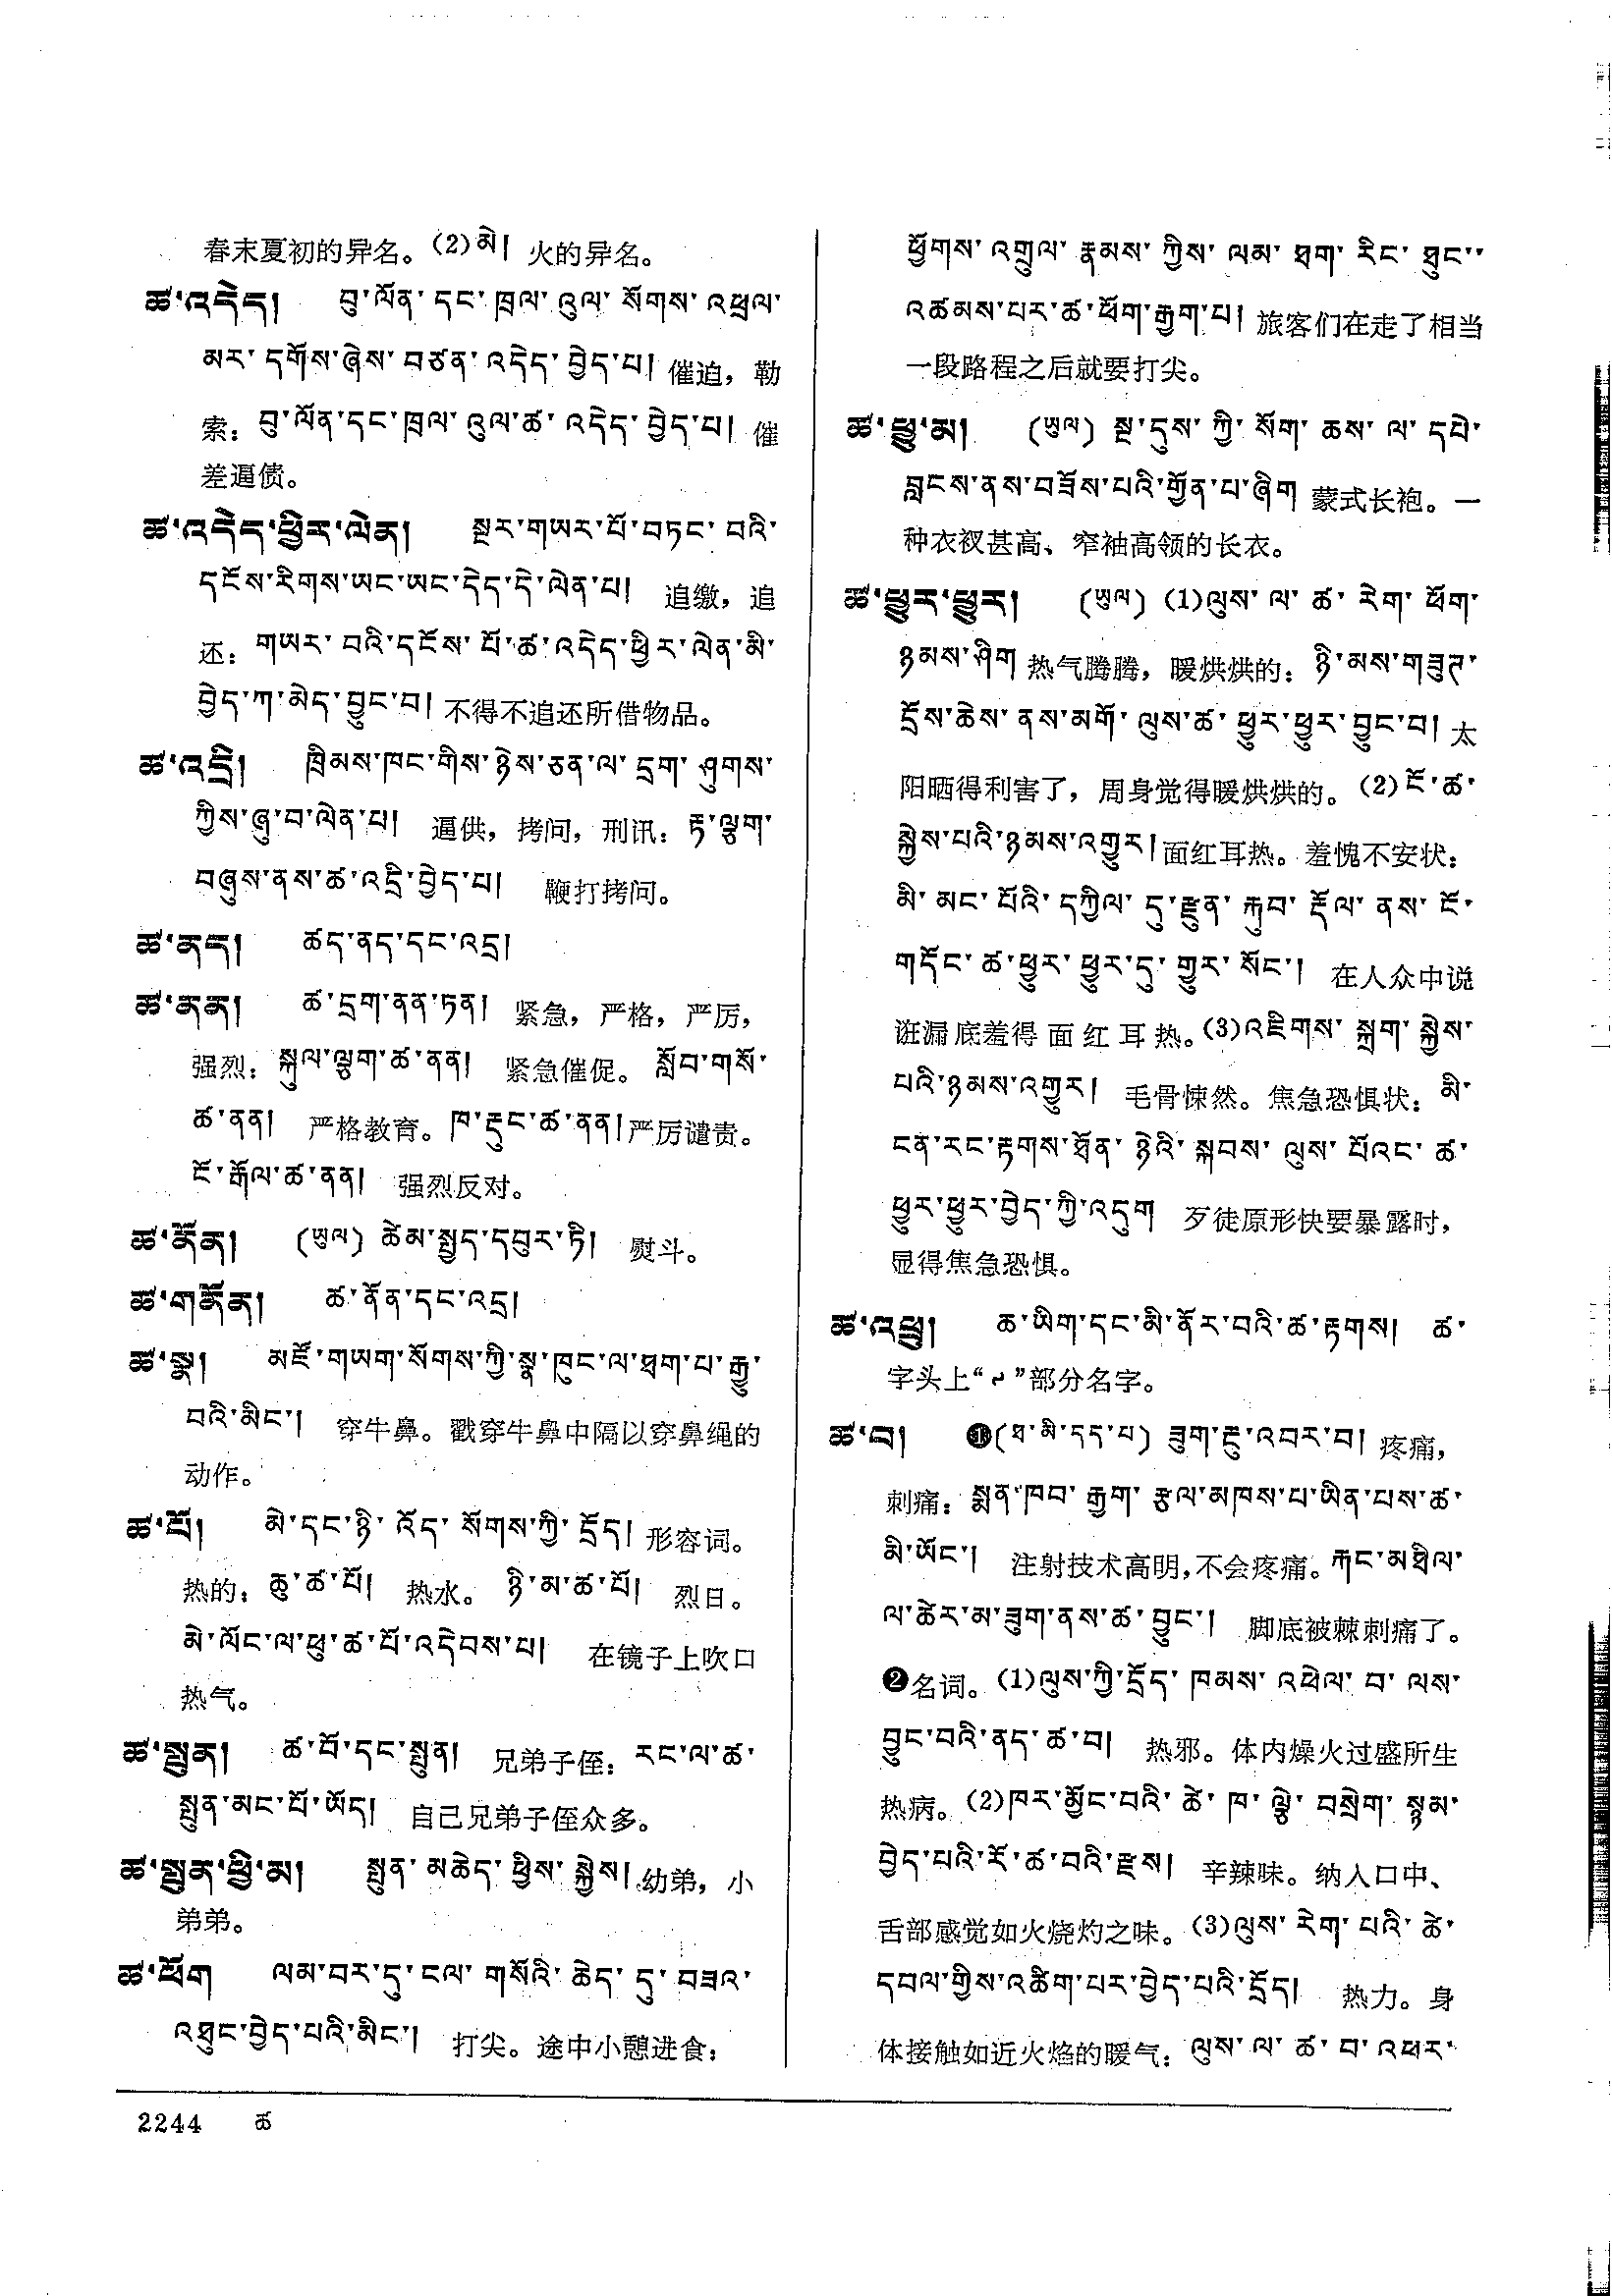 春末夏初的异名。(2)མེ། 火的异名。
ཚ་འདེད། བུ་ལོན་དང་ཁྲལ་འུལ་སོགས་འཕྲལ་
མར་དགོས་ཞེས་བཙན་འདེད་བྱེད་པ། 催迫，勒
索：བུ་ལོན་དང་ཁྲལ་འུལ་ཚ་འདེད་བྱེད་པ། 催
差逼债。
ཚ་འདེད་ཕྱིར་ལེན། སྔར་གཡར་པོ་བཏང་བའི་
དངོས་རིགས་ཡང་ཡང་དེད་དེ་ལེན་པ། 追缴，追
还：གཡར་བའི་དངོས་པོ་ཚ་འདེད་ཕྱིར་ལེན་མི་
བྱེད་ཀ་མེད་བྱུང་བ། 不得不追还所借物品。
ཚ་འདྲི། ཁྲིམས་ཁང་གིས་ཉེས་ཅན་ལ་དྲག་ཤུགས་
ཀྱིས་ཞུ་བ་ལེན་པ། 逼供，拷问，刑讯：རྟ་ལྕག་
བཞུས་ནས་ཚ་འདྲི་བྱེད་པ། 鞭打拷问。
ཚ་ནད། ཚད་ནད་དང་འདྲ།
ཚ་ནན། ཚ་དྲག་ནན་ཏན། 紧急，严格，严厉，
强烈：སྐུལ་ལྕག་ཚ་ནན། 紧急催促。སློབ་གསོ་
ཚ་ནན། 严格教育。ཁ་རྡུང་ཚ་ནན།严厉谴责。
ངོ་རྒོལ་ཚ་ནན། 强烈反对。
ཚ་ནོན། (ཡུལ) ཚེམ་སྤྱད་དབུར་ཏི། 熨斗。
ཚ་གནོན། ཚ་ནོན་དང་འདྲ།
ཚ་སྣ། མཛོ་གཡག་སོགས་ཀྱི་སྣ་ཁུང་ལ་ཐག་པ་རྒྱུ་
བའི་མིང་། 穿牛鼻。戳穿牛鼻中隔以穿鼻绳的
动作。
ཚ་པོ། མེ་དང་ཉི་འོད་སོགས་ཀྱི་དྲོད། 形容词。
热的：ཆུ་ཚ་པོ། 热水。ཉི་མ་ཚ་པོ། 烈日。
མེ་ལོང་ལ་ཕུ་ཚ་པོ་འདེབས་པ། 在镜子上吹口
热气。
ཚ་སྤུན། ཚ་བོ་དང་སྤུན། 兄弟子侄：རང་ལ་ཚ་
སྤུན་མང་པོ་ཡོད། 自己兄弟子侄众多。
ཚ་སྤུན་ཕྱི་མ། སྤུན་མཆེད་ཕྱིས་སྐྱེས། 幼弟，小
弟弟。
ཚ་ཕོག ལམ་བར་དུ་ངལ་གསོའི་ཆེད་དུ་བཟའ་
འཐུང་བྱེད་པའི་མིང་། 打尖。途中小憩进食：
ཕྱོགས་འགྲུལ་རྣམས་ཀྱིས་ལམ་ཐག་རིང་ཐུང་
འཚམས་པར་ཚ་ཕོག་རྒྱག་པ། 旅客们在走了相当
一段路程之后就要打尖。
ཚ་ཕྱུ་མ། (ཡུལ) སྔ་དུས་ཀྱི་སོག་ཆས་ལ་དཔེ་
བླངས་ནས་བཟོས་པའི་གྱོན་པ་ཞིག 蒙式长袍。一
种衣衩甚高、窄袖高领的长衣。
ཚ་ཕྱུར་ཕྱུར། (ཡུལ) (1)ལུས་ལ་ཚ་རེག་ཕོག་
ཉམས་ཤིག 热气腾腾，暖烘烘的：ཉི་མས་གཟུར་
དྲོས་ཆེས་ནས་མགོ་ལུས་ཚ་ཕྱུར་ཕྱུར་བྱུང་བ། 太
阳晒得利害了，周身觉得暖烘烘的。(2)ངོ་ཚ་
སྐྱེས་པའི་ཉམས་འགྱུར།面红耳热。羞愧不安状：
མི་མང་པོའི་དཀྱིལ་དུ་རྫུན་རྐུབ་རྡོལ་ནས་ངོ་
གདོང་ཚ་ཕྱུར་ཕྱུར་དུ་གྱུར་སོང་། 在人众中说
诳漏底羞得面红耳热。(3)འཇིགས་སྐྲག་སྐྱེས་
པའི་ཉམས་འགྱུར། 毛骨悚然。焦急恐惧状：མི་
ངན་རང་རྟགས་ཐོན་ཉེའི་སྐབས་ལུས་པོའང་ཚ་
ཕྱུར་ཕྱུར་བྱེད་ཀྱི་འདུག 歹徒原形快要暴露时，
显得焦急恐惧。
ཚ་འཕྲུ། ཆ་ཡིག་དང་མི་ནོར་བའི་ཚ་རྟགས། ཚ་
字头上“༹”部分名字。
ཚ་བ། ❶(ཐ་མི་དད་པ) ཟུག་རྔུ་འབར་བ། 疼痛，
刺痛：སྨན་ཁབ་རྒྱག་རྩལ་མཁས་པ་ཡིན་པས་ཚ་
མི་ཡོང་། 注射技术高明，不会疼痛。རྐང་མཐིལ་
ལ་ཚེར་མ་ཟུག་ནས་ཚ་བྱུང་། 脚底被棘刺痛了。
❷名词。(1)ལུས་ཀྱི་དྲོད་ཁམས་འཕེལ་བ་ལས་
བྱུང་བའི་ནད་ཚ་བ། 热邪。体内燥火过盛所生
热病。(2)ཁར་མྱོང་བའི་ཚེ་ཁ་ལྕེ་བསྲེག་སྙམ་
བྱེད་པའི་རོ་ཚ་བའི་རྫས། 辛辣味。纳入口中、
舌部感觉如火烧灼之味。(3)ལུས་རེག་པའི་ཚེ་
དབལ་གྱིས་འཚིག་པར་བྱེད་པའི་དྲོད། 热力。身
体接触如近火焰的暖气：ལུས་ལ་ཚ་བ་འཕར་
2244 ཚ